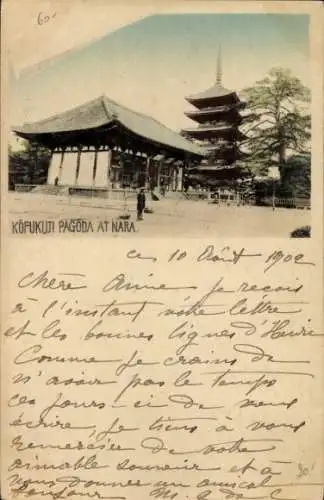 60-
KŌFUKUJI PAGŌDA AT NARA.
ce 10 Août 1902
Chère Anne je reçois
à l'instant votre lettre
et les bonnes lignes d'Henri
Comme je crains de
n'avoir pas le temps
ces jours-ci de vous
écrire, je tiens à vous
remercier de votre
aimable souvenir et à
vous donner un amical
bonjour M.